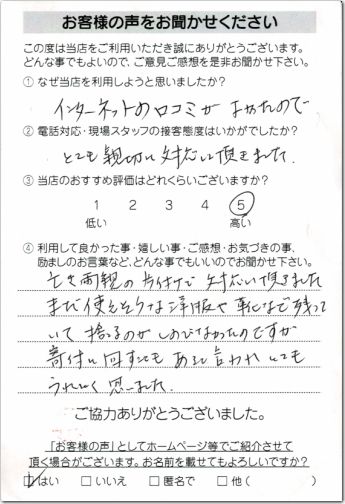 お客様の声をお聞かせください
この度は当店をご利用いただき誠にありがとうございます。
どんな事でもよいので、ご意見ご感想を是非お聞かせ下さい。
① なぜ当店を利用しようと思いましたか?
インターネットの口コミが よかったので
② 電話対応・現場スタッフの接客態度はいかがでしたか?
とても親切に対応して頂きました。
③ 当店のおすすめ評価はどれくらいございますか?
1 2 3 4 5
低い 高い
④ 利用して良かった事・嬉しい事・ご感想・お気づきの事、
励ましのお言葉など、どんな事でもいいのでお聞かせ下さい。
亡き両親の片付けで 対応い頂きました
まだ使えそうな洋服や 靴など残って
いて 捨るのが しのびなかったのですが
寄付に回すことも あると言われ とても
うれしく 思いました。
ご協力ありがとうございました。
「お客様の声」としてホームページ等でご紹介させて
頂く場合がございます。お名前を載せてもよろしいですか?
はい □ いいえ □ 匿名で □ 他 ( )